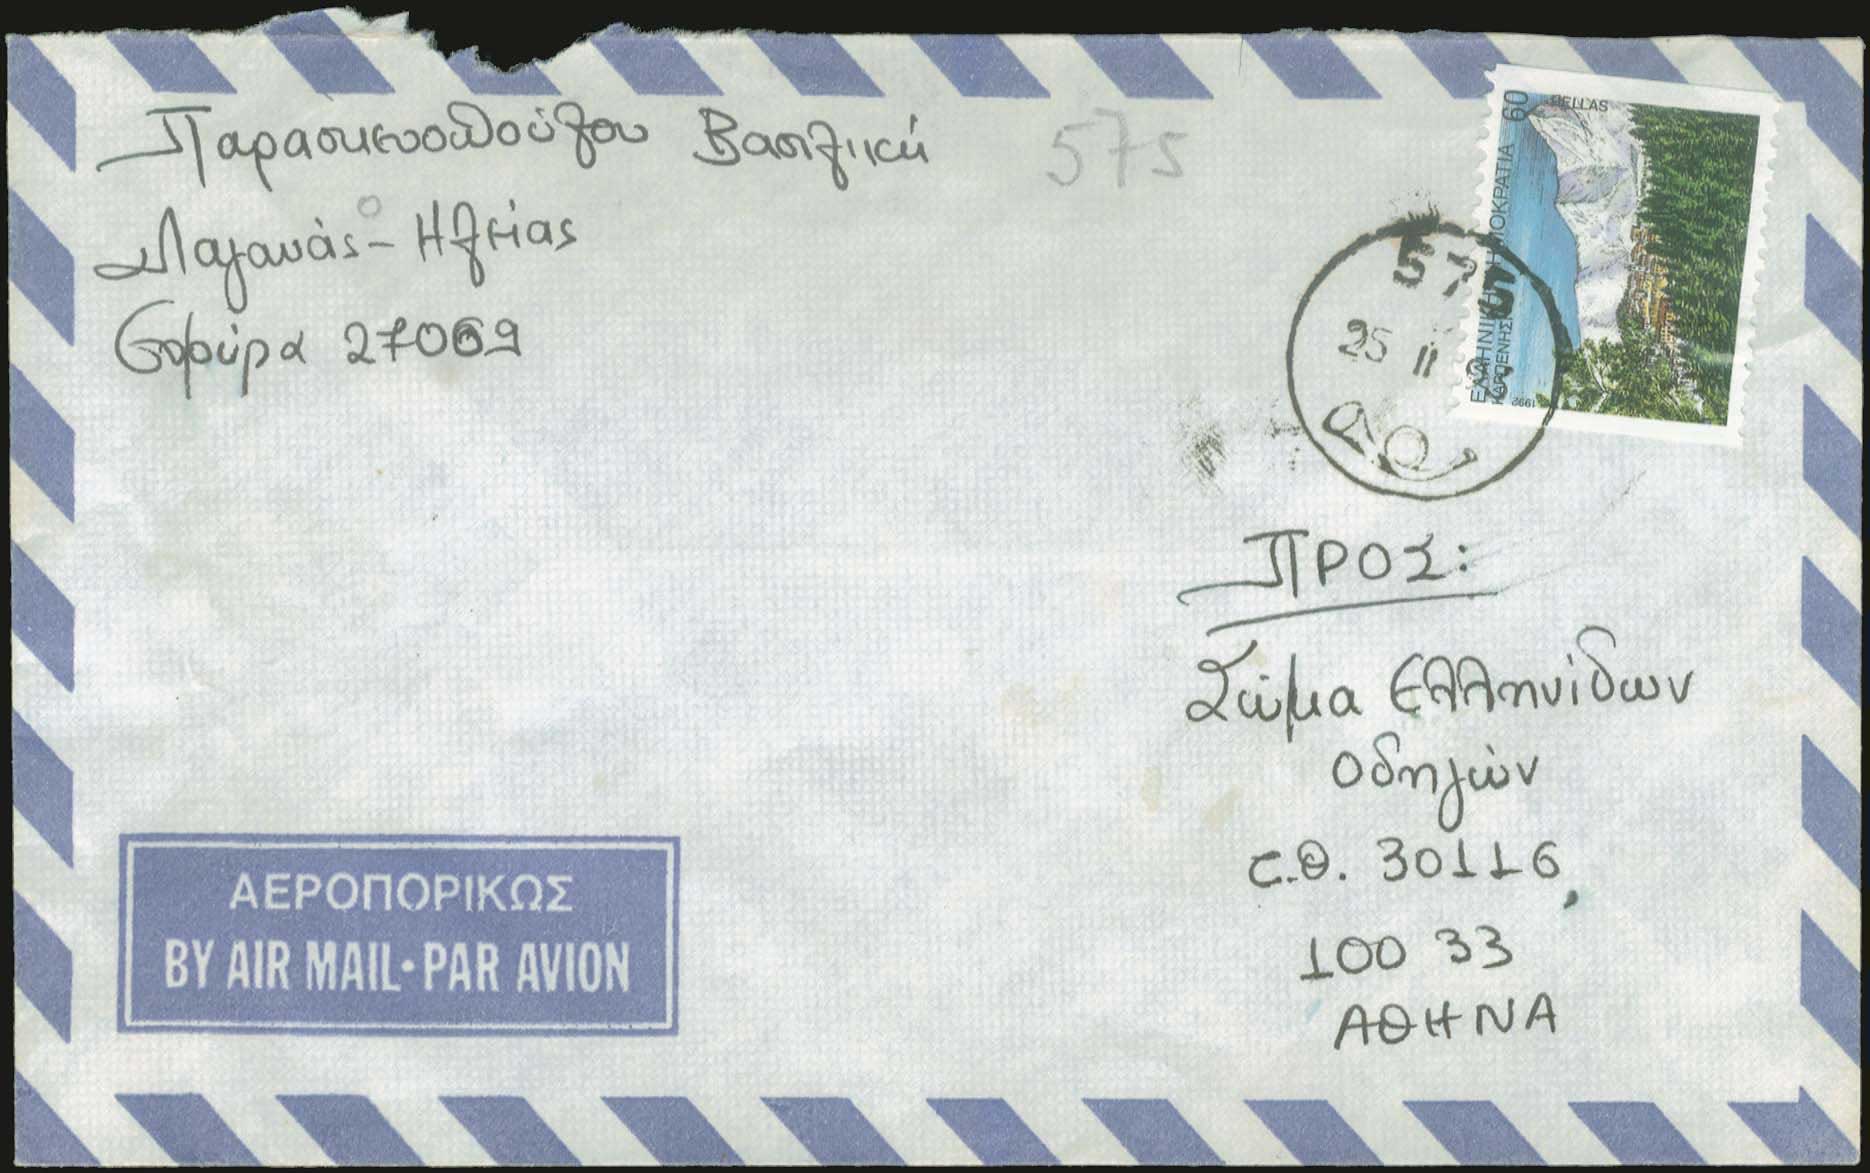 Παρασκευοπούλου Βασιλική
Λαγανάς - Ηλείας
Εφύρα 27069
575
HELLAS
60
ΕΛΛΗΝΙΚΗ ΔΗΜΟΚΡΑΤΙΑ
ΚΑΡΠΕΝΗΣΙ
1992
575
25 II
ΠΡΟΣ:
Σώμα Ελληνίδων
Οδηγών
τ.θ. 30116,
100 33
ΑΘΗΝΑ
ΑΕΡΟΠΟΡΙΚΩΣ
BY AIR MAIL·PAR AVION